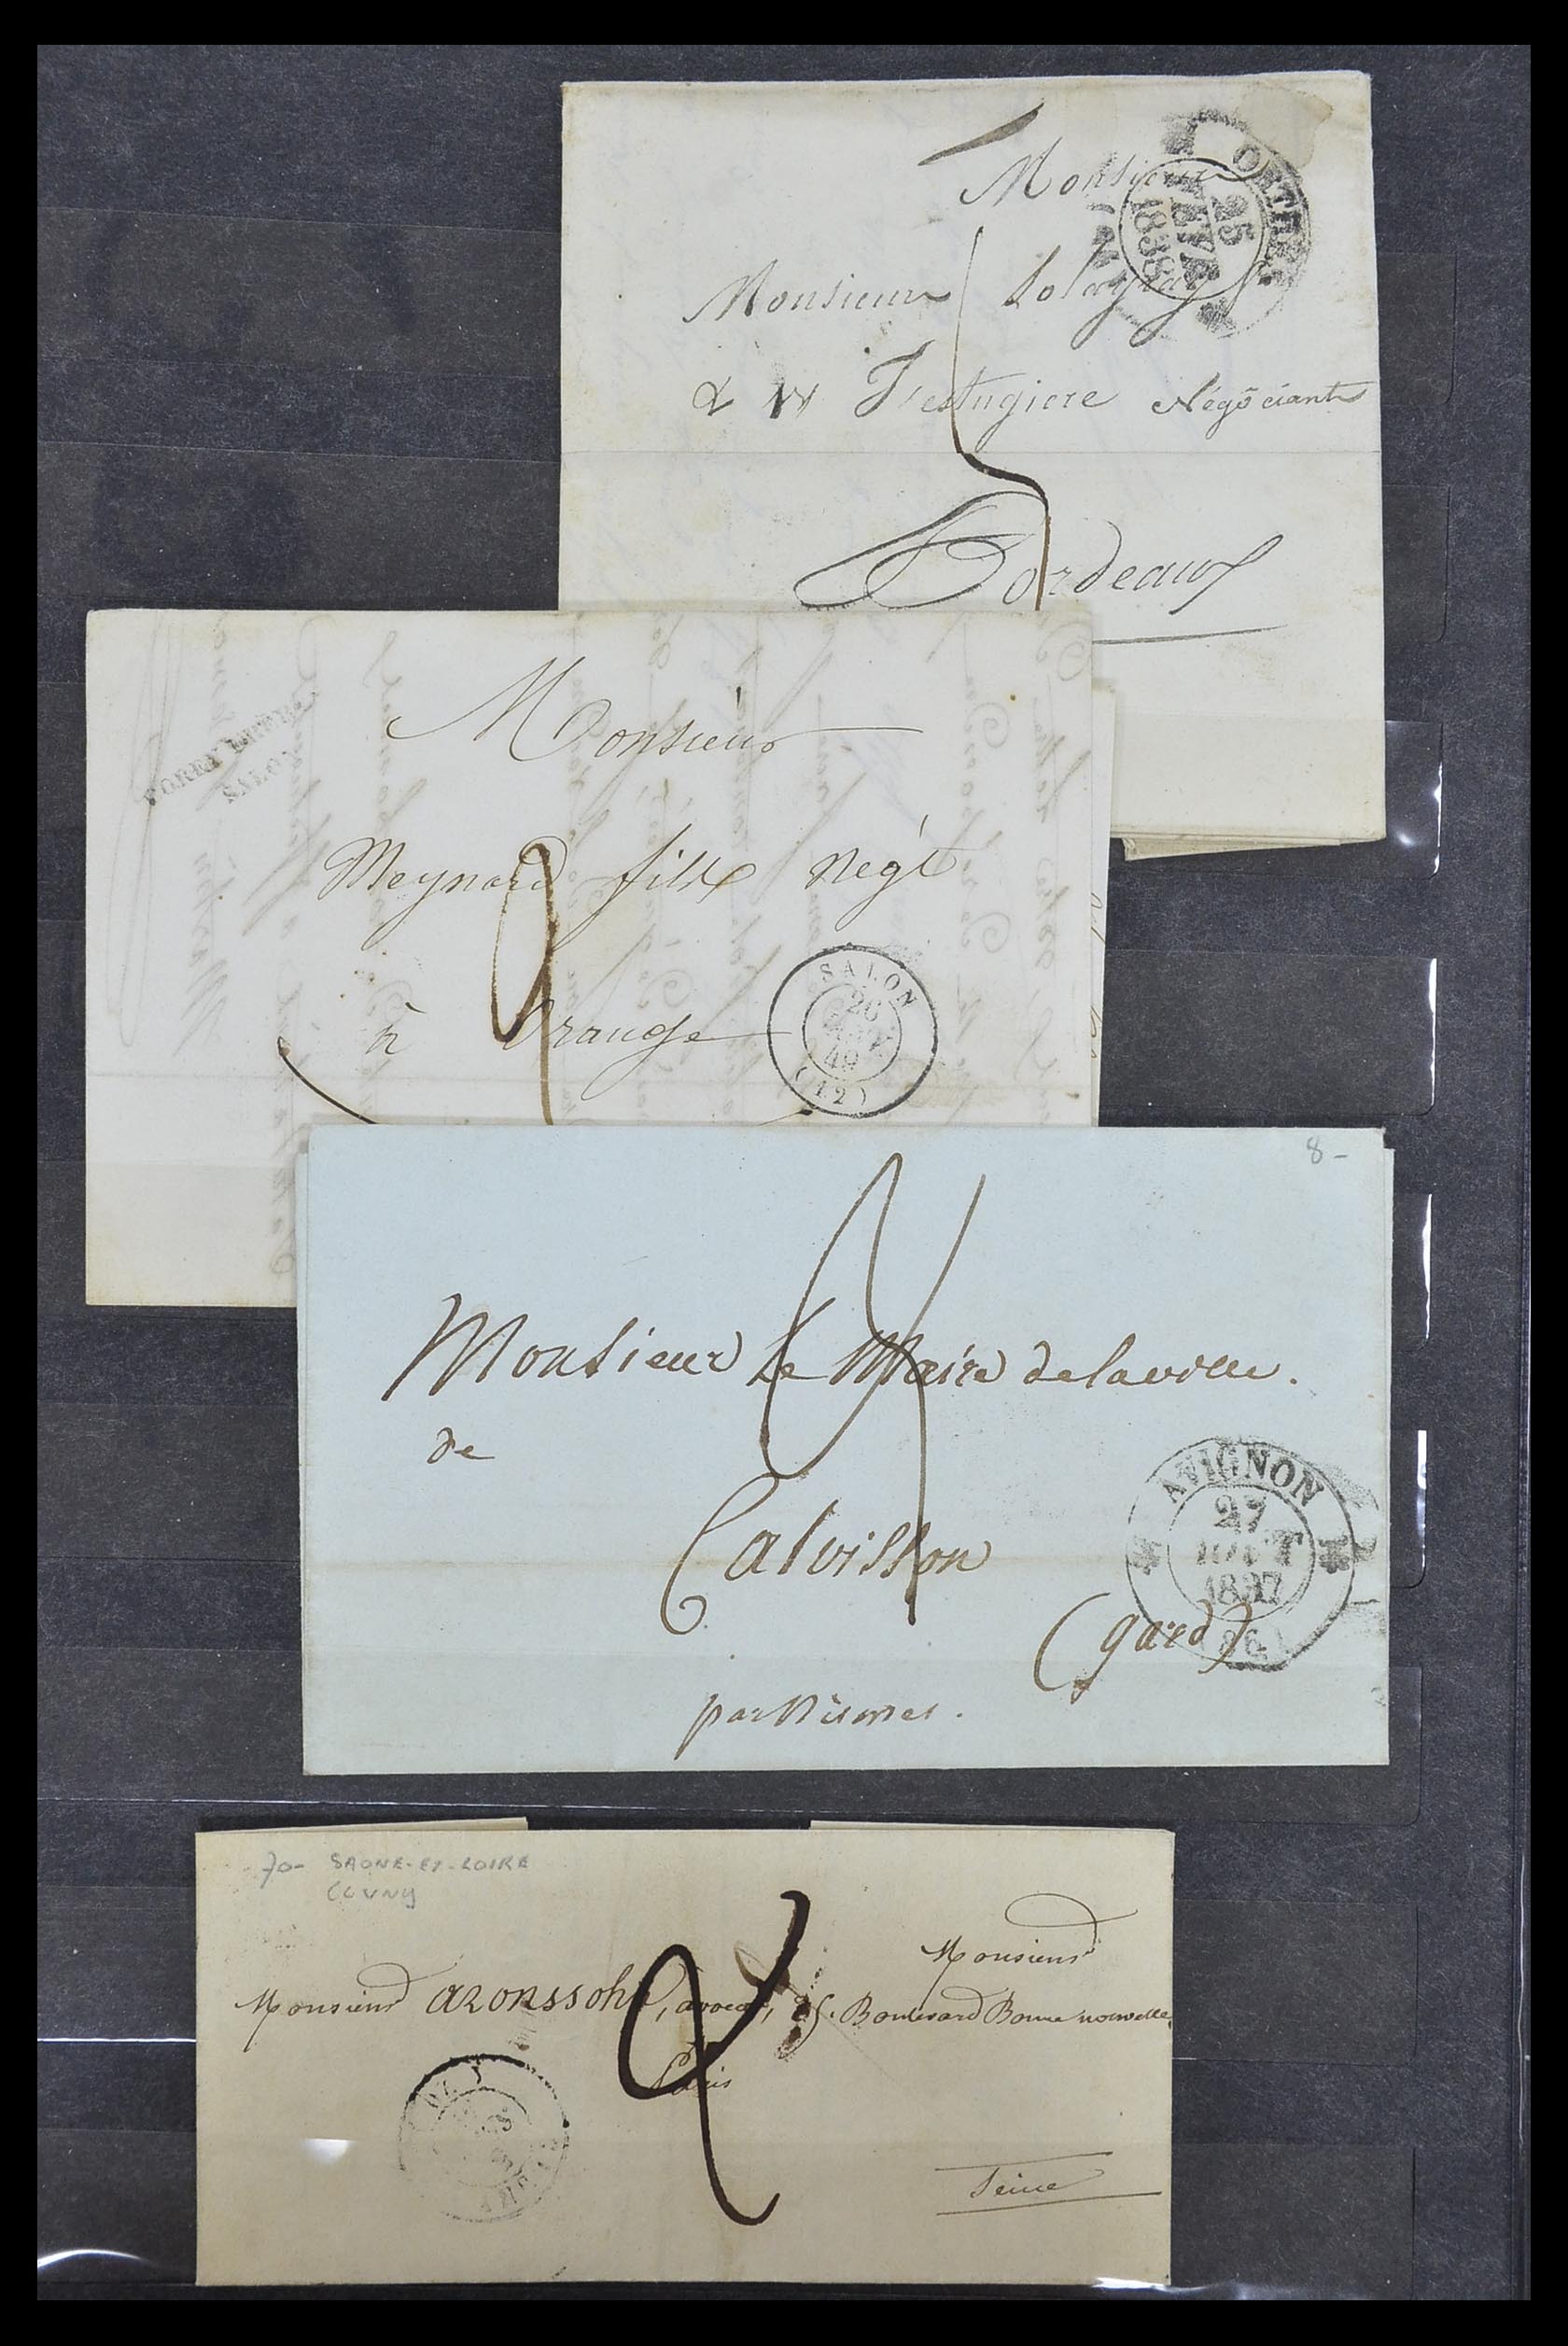 Monsieur
Monsieur
& Festugiere Négociants
Bordeaux
ORTHEZ
25
1838
5
Monsieur
Meynard fils Négt
à Orange
SALON
SALON
26
49
(12)
2
8-
Monsieur Le Maire de la ville.
de
Calvisson
(gard)
par Nismes.
AVIGNON
27
AOUT
1837
70- SAONE-ET-LOIRE
CLUNY
Monsieur
Monsieur aronssohn, avocat, 25. Boulevard Bonne nouvelle,
Paris
Seine